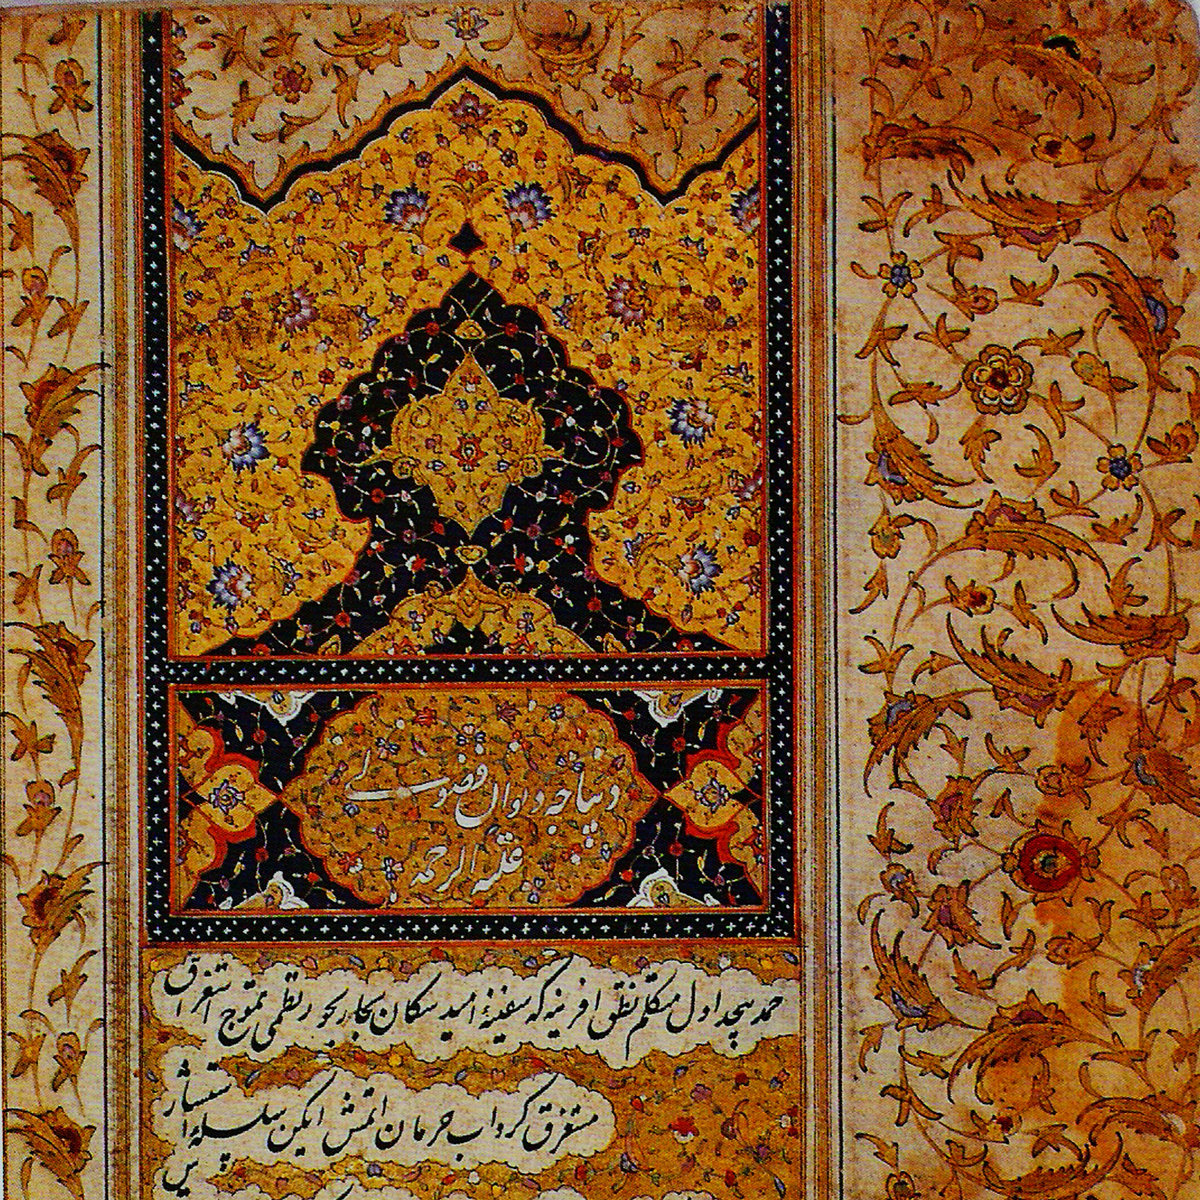 دیباجه دیوان فضولی
علیه الرحمه
حمد بیحد اول متکلم نطق آفرینه که سفینۀ امید سکان بحار بحور نظمی تموج استغراق
مستغرق گرداب حرمان اتمش ایکن سلسله